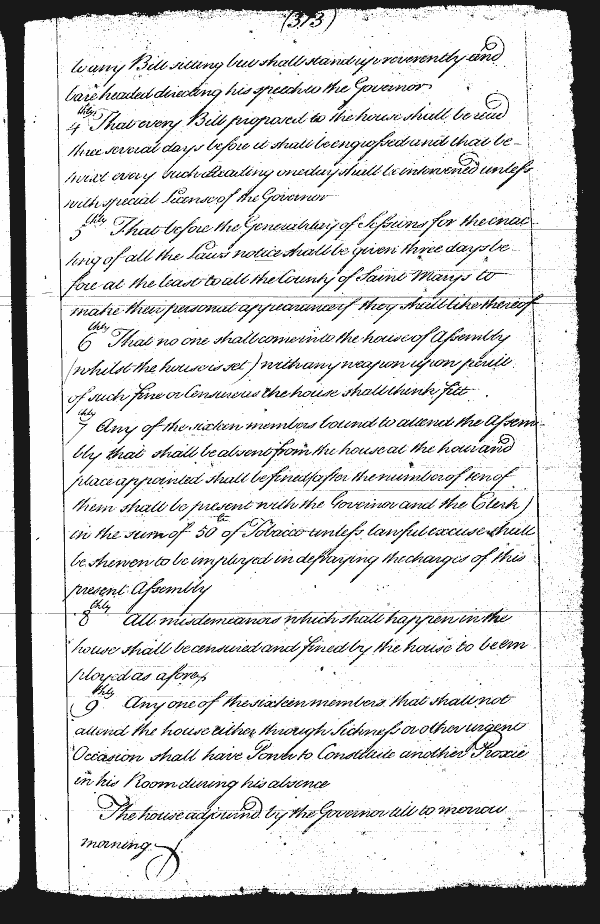 (313)
to any Bill sitting but shall stand up reverently and
bare headed directing his speech to the Governor
4thly That every Bill proposed to the house shall be read
three several days before it shall be engrossed and that be-
twixt every such Reading one day shall be intervened unless
with special License of the Governor
5thly That before the Generality of Sessions for the enac-
ting of all the Laws notice shall be given three days be-
fore at the least to all the County of Saint Marys to
make their personal appearance if they shall like thereof
6thly That no one shall come into the house of Assembly
(whilst the house is set) with any weapon upon perill
of such fine or Censure as the house shall think fitt
7thly Any of the sixteen members bound to attend the Assem-
bly that shall be absent from the house at the hour and
place appointed shall be fined (after the number of ten of
them shall be present with the Governor and the Clerk)
in the sum of 50lb of Tobacco unless lawful excuse shall
be shewen to be imployed in defraying the charges of this
present Assembly
8thly All misdemeanors which shall happen in the
house shall be censured and fined by the house to be em
ployed as afores
9thly Any one of the sixteen members that shall not
attend the house either through Sickness or other urgent
Occasion shall have Power to Constitute another Proxie
in his Room during his absence
The house adjourned by the Governor till to morrow
morning